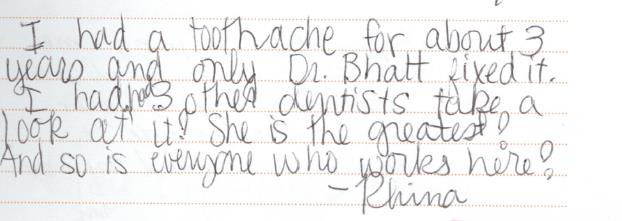 I had a toothache for about 3
years and only Dr. Bhatt fixed it.
I had 3 other dentists take a
look at it! She is the greatest!
And so is everyone who works here!
- Rhina